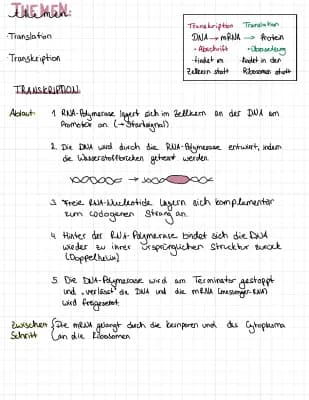 THEMEN:
-Translation
-Transkription
Transkription Translation
DNA → mRNA → Protein
• Abschrift • Übersetzung
findet im findet in den
Zellkern statt Ribosomen statt
TRANSKRIPTION
Ablauf: 1. RNA-Polymerase lagert sich im Zellkern an der DNA am
Promotor an. (→ Startsignal)
2. Die DNA wird durch die RNA-Polymerase entwirrt, indem
die Wasserstoffbrücken getrennt werden.
3. Freie RNA-Nucleotide lagern sich komplementär
zum codogenen Strang an.
4. Hinter der RNA-Polymerase bindet sich die DNA
wieder zu ihrer ursprünglichen Struktur zurück
(Doppelhelix)
5. Die DNA-Polymerase wird am Terminator gestoppt
und "verlässt" die DNA und die mRNA (messenger-RNA)
wird freigesetzt.
Zwischen Die mRNA gelangt durch die Kernporen und das Cytoplasma
Schritt an die Ribosomen